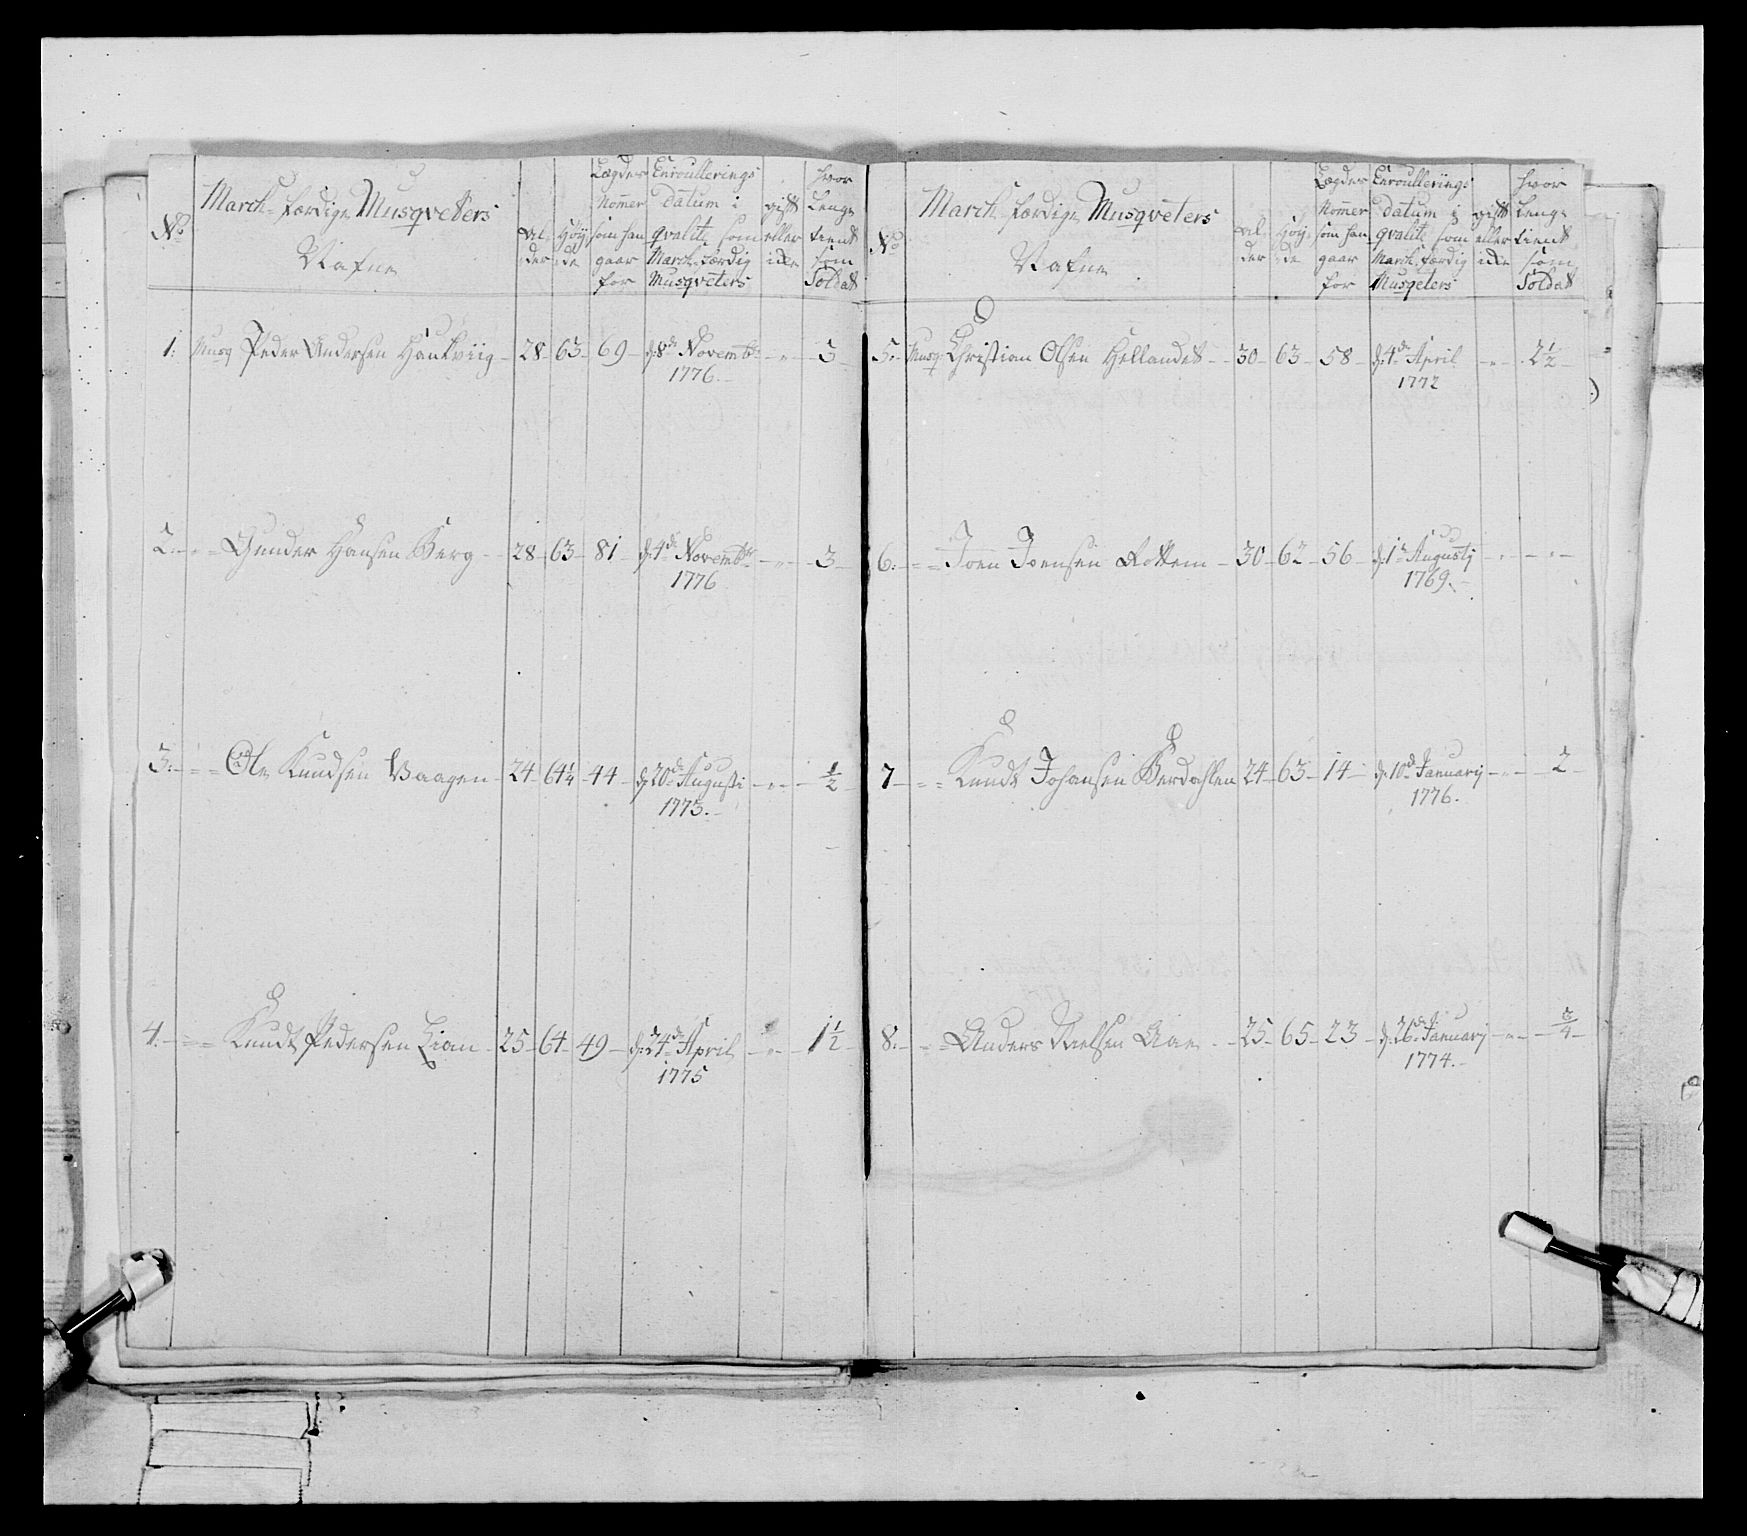 No
March-færdige Musqveters
Nafne
Al-
der
Höy-
de
Lægders
Nommer
som han
gaar
for
Enroullerings
datum i
qvalite som
March-færdig
Musqveters
gift
eller
ikke
hvor
Lenge
tient
som
Soldat
1: Musq Peder Andersen Haukviig - 28 - 63 - 69 - d: 8de Novembr - " - 3
1776.
2: - " - Gunder Hansen Berg - 28 - 63 - 81 - d: 4de Novembr - " - 3
1776
3: - " - Ole Knudsen Vaagen - 24 - 64 1/4 - 44 - d: 20de Augusti - " - 1/2
1773.
4: - " - Knudt Pedersen Lian - 25 - 64 - 49 - d: 24de April - " - 1 1/2
1775
No
March-færdige Musqveters
Nafne
Al-
der
Höy-
de
Lægders
Nommer
som han
gaar
for
Enroullerings
datum i
qvalite som
March-færdig
Musqeters
gift
eller
ikke
hvor
Lenge
tient
som
Soldat
5: Musq Christian Olsen Hellandet - 30 - 63 - 58 - d: 4de April - " - 2 1/2
1772
6: - " - Joen Joensen Rottem - 30 - 62 - 56 - d: 1te Augustj - " - " -
1769.
7 - " - Knudt Johansen Berdahlen 24 - 63 - 14 - d: 10de Januarij - " - 2
1776.
8: - " - Anders Nielsen Aae - 25 - 65 - 23 - d: 26de Januarj - " - 3/4
1774.